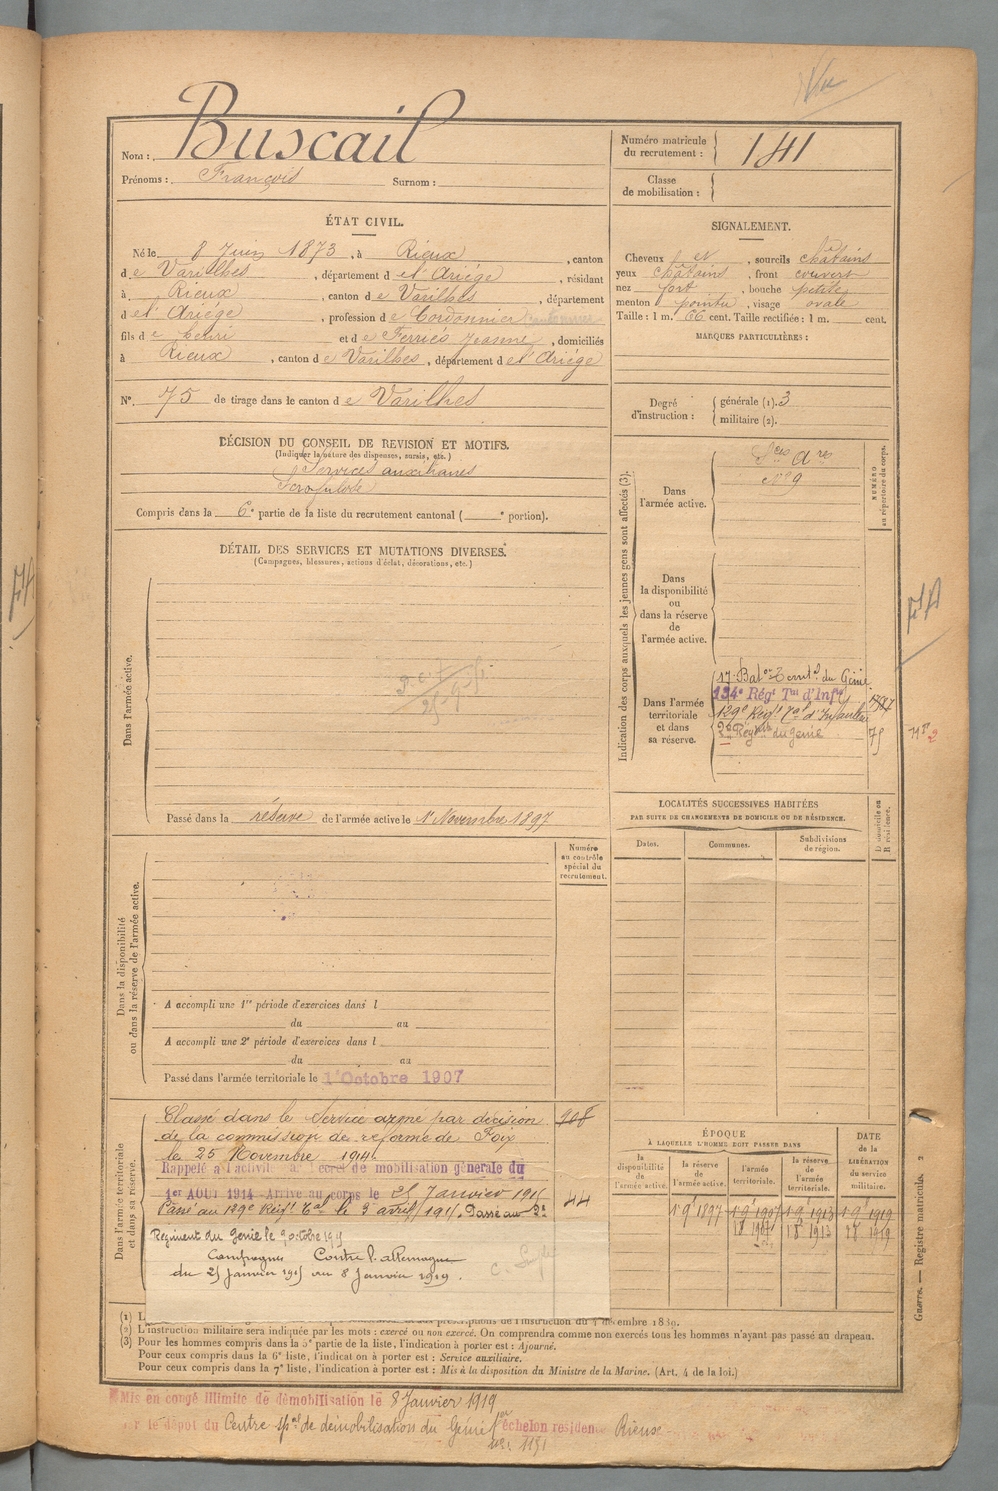 Nom : Buscail
Prénoms : François Surnom :
Numéro matricule du recrutement : 141
Classe de mobilisation :
ÉTAT CIVIL.
Né le 8 Juin 1873, à Rieux, canton
de Varilhes, département de l'Ariége, résidant
à Rieux, canton de Varilhes, département
de l'Ariége, profession de Cordonnier
fils de Henri et de Ferriés Jeanne, domiciliés
à Rieux, canton de Varilhes, département de l'Ariége
N° 75 de tirage dans le canton de Varilhes
SIGNALEMENT.
Cheveux et, sourcils châtains
yeux châtains, front couvert
nez fort, bouche petite
menton pointu, visage ovale
Taille : 1 m. 66 cent. Taille rectifiée : 1 m. cent.
MARQUES PARTICULIÈRES :
Degré d'instruction : générale (1). 3
militaire (2).
DÉCISION DU CONSEIL DE REVISION ET MOTIFS.
(Indiquer la nature des dispenses, sursis, etc.)
Services auxiliaires
Scrofulose
Compris dans la 6e partie de la liste du recrutement cantonal ( e portion).
DÉTAIL DES SERVICES ET MUTATIONS DIVERSES.
(Campagnes, blessures, actions d'éclat, décorations, etc.)
Dans l'armée active.
Passé dans la réserve de l'armée active le 1er Novembre 1897
Indication des corps auxquels les jeunes gens sont affectés (3).
NUMÉRO au répertoire du corps.
Dans l'armée active.
Sces Ares
N° 9
Dans la disponibilité ou dans la réserve de l'armée active.
Dans l'armée territoriale et dans sa réserve.
17e Baton Territal du Génie
134e Régt Tal d'Infie
129e Régt Tal d'Infanterie
2e Régiment du génie
75
LOCALITÉS SUCCESSIVES HABITÉES
PAR SUITE DE CHANGEMENTS DE DOMICILE OU DE RÉSIDENCE.
Dates. Communes. Subdivisions de région. D domicile ou R résidence.
Dans la disponibilité ou dans la réserve de l'armée active.
Numéro au contrôle spécial du recrutement.
A accompli une 1re période d'exercices dans l
du au
A accompli une 2e période d'exercices dans l
du au
Passé dans l'armée territoriale le 1 Octobre 1907
Dans l'armée territoriale et dans sa réserve.
Classé dans le Service armé par décision
de la commission de réforme de Foix
le 25 Novembre 1914.
Rappelé à l'activité par Décret de mobilisation générale du
1er AOUT 1914 Arrivé au corps le 25 Janvier 1915
Passé au 129e Régt Tal le 3 avril 1915. Passé au 2e
Régiment du Génie le 9 octobre 1915
Campagnes Contre l'allemagne
du 25 janvier 1915 au 8 Janvier 1919.
44
ÉPOQUE
À LAQUELLE L'HOMME DOIT PASSER DANS
la disponibilité de l'armée active. la réserve de l'armée active. l'armée territoriale. la réserve de l'armée territoriale.
DATE de la LIBÉRATION du service militaire.
1 9 1897 1 9 1907 1 9 1913 1 9 1919
1 8 1907 1 8 1913 1 8 1919
Guerre. — Registre matricule. 2
d'instruction du 4 décembre 1889.
(2) L'instruction militaire sera indiquée par les mots : exercé ou non exercé. On comprendra comme non exercés tous les hommes n'ayant pas passé au drapeau.
(3) Pour les hommes compris dans la 5e partie de la liste, l'indication à porter est : Ajourné.
Pour ceux compris dans la 6e liste, l'indication à porter est : Service auxiliaire.
Pour ceux compris dans la 7e liste, l'indication à porter est : Mis à la disposition du Ministre de la Marine. (Art. 4 de la loi.)
Mis en congé illimité de démobilisation le 8 Janvier 1919
par le dépot du Centre spal de démobilisation du Génie 1er échelon résidence Rieux